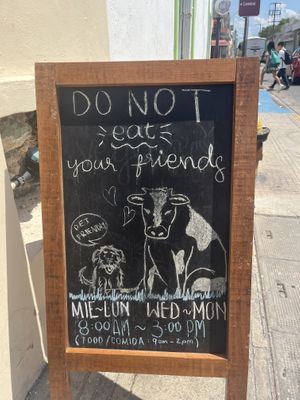 DO NOT
eat
your friends
PET
FRIENDLY
MIE~LUN WED~MON
8:00AM ~ 3:00 PM
(FOOD/COMIDA: 9am-2pm)